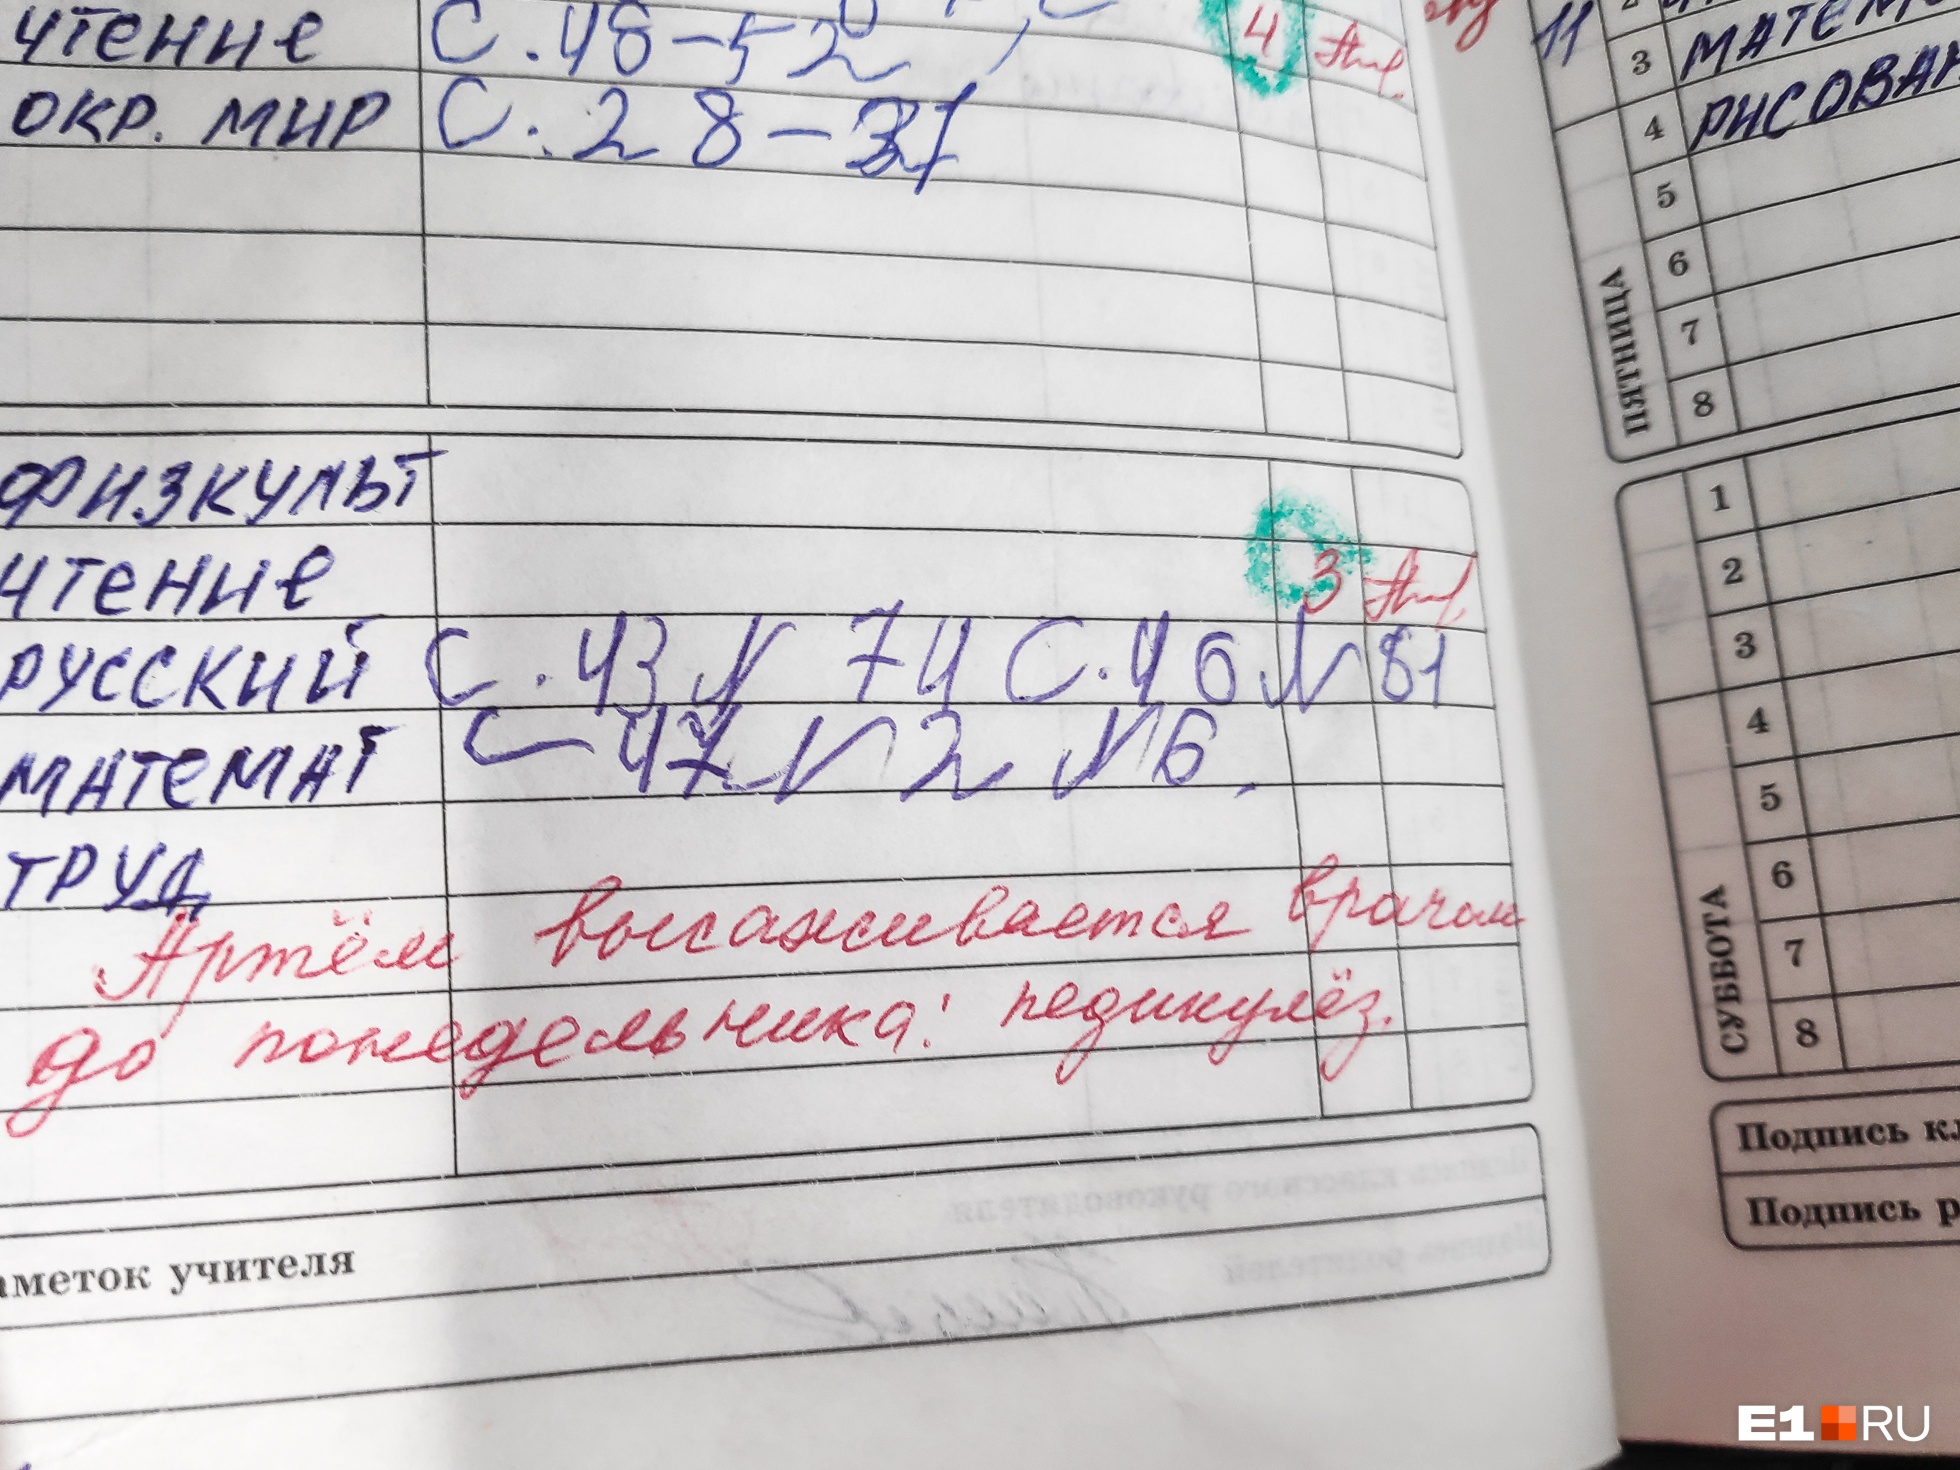 чтение С. 48-52 4
окр. мир С. 28-31
физкульт
чтение 3
русский С. 43 N 74 С. 46 N 81
математ С 47 N 2 N 6,
труд
Артём высаживается врачом
до понедельника: педикулёз.
аметок учителя
11
3 матем
4 рисован
5
6
7
8
ПЯТНИЦА
1
2
3
4
5
6
7
8
СУББОТА
Подпись кл
Подпись р
E1 RU